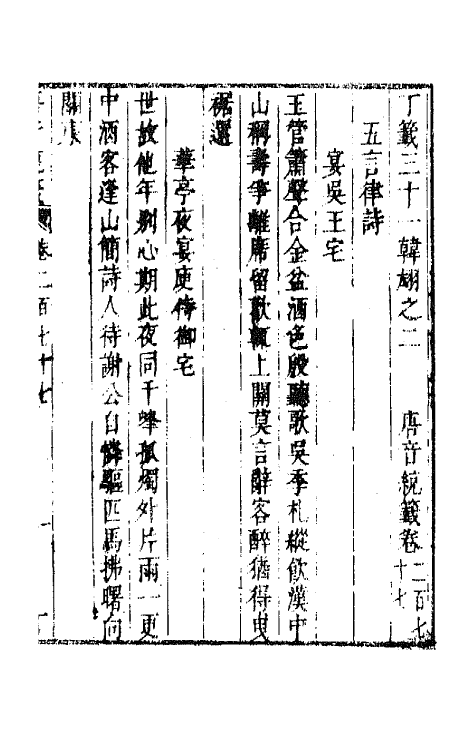 丁籤三十一韓翃之二　唐音統籤卷二百七十七
五言律詩
宴吳王宅
玉管簫聲合金盆酒色殷聽歌吳季札縱飲漢中
山稱壽爭離席留歡輒上關莫言辭客醉猶得曳
裾還
華亭夜宴庾侍御宅
世故他年別心期此夜同千峰孤燭外片雨一更
中酒客逢山簡詩人待謝公自憐驅匹馬拂曙向
關東
卷二百七十七